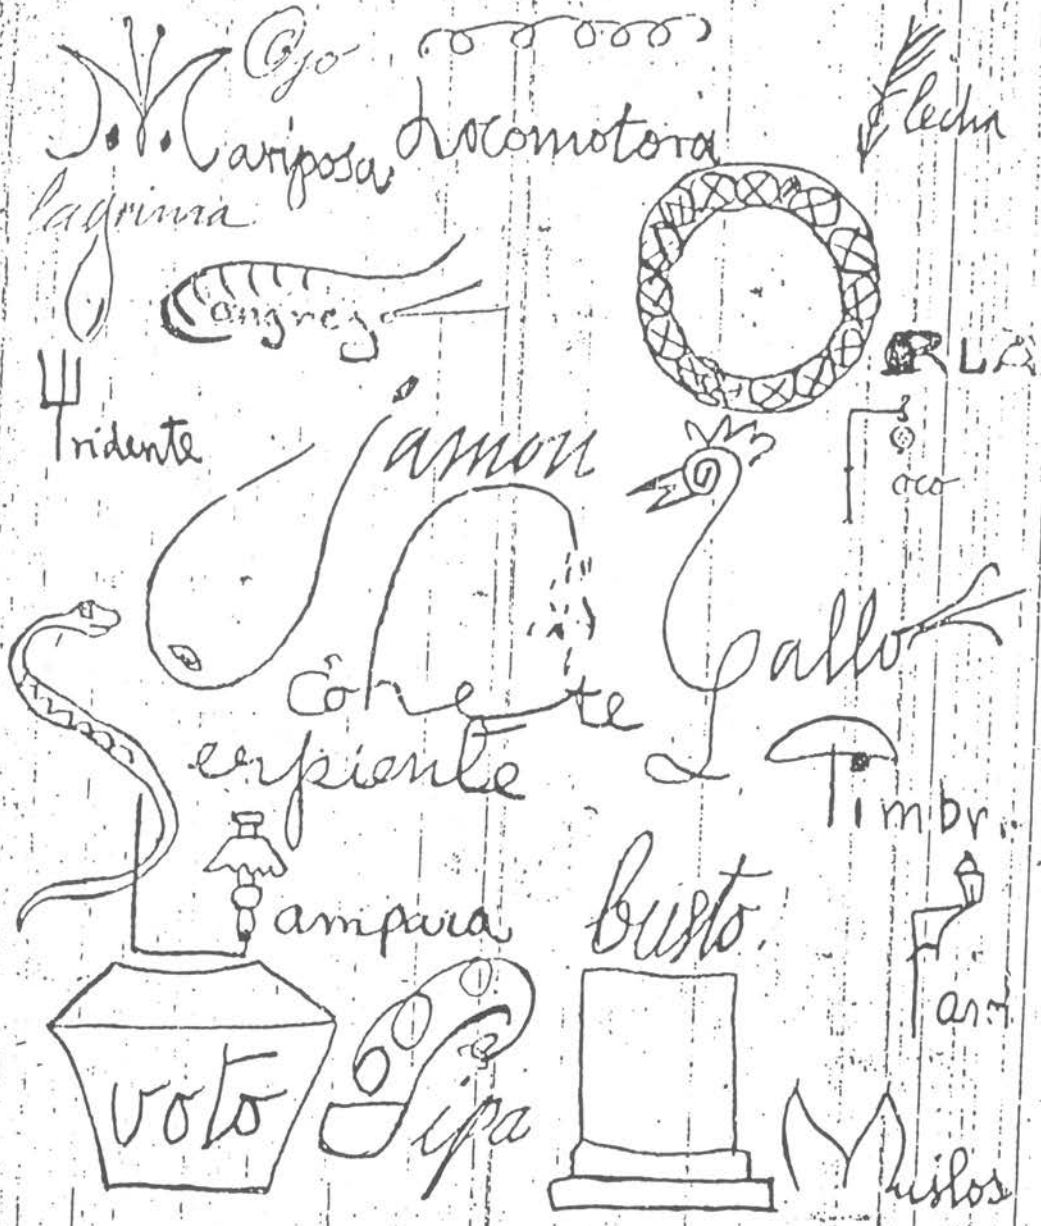 Ojo
Mariposa Locomotora flecha
lagrima
Cangrejo
ORLA
Tridente
Jamon
Foco
Gallo
Cohete
Serpiente
Timbr
Lampara busto
voto
Pipa
Muslos